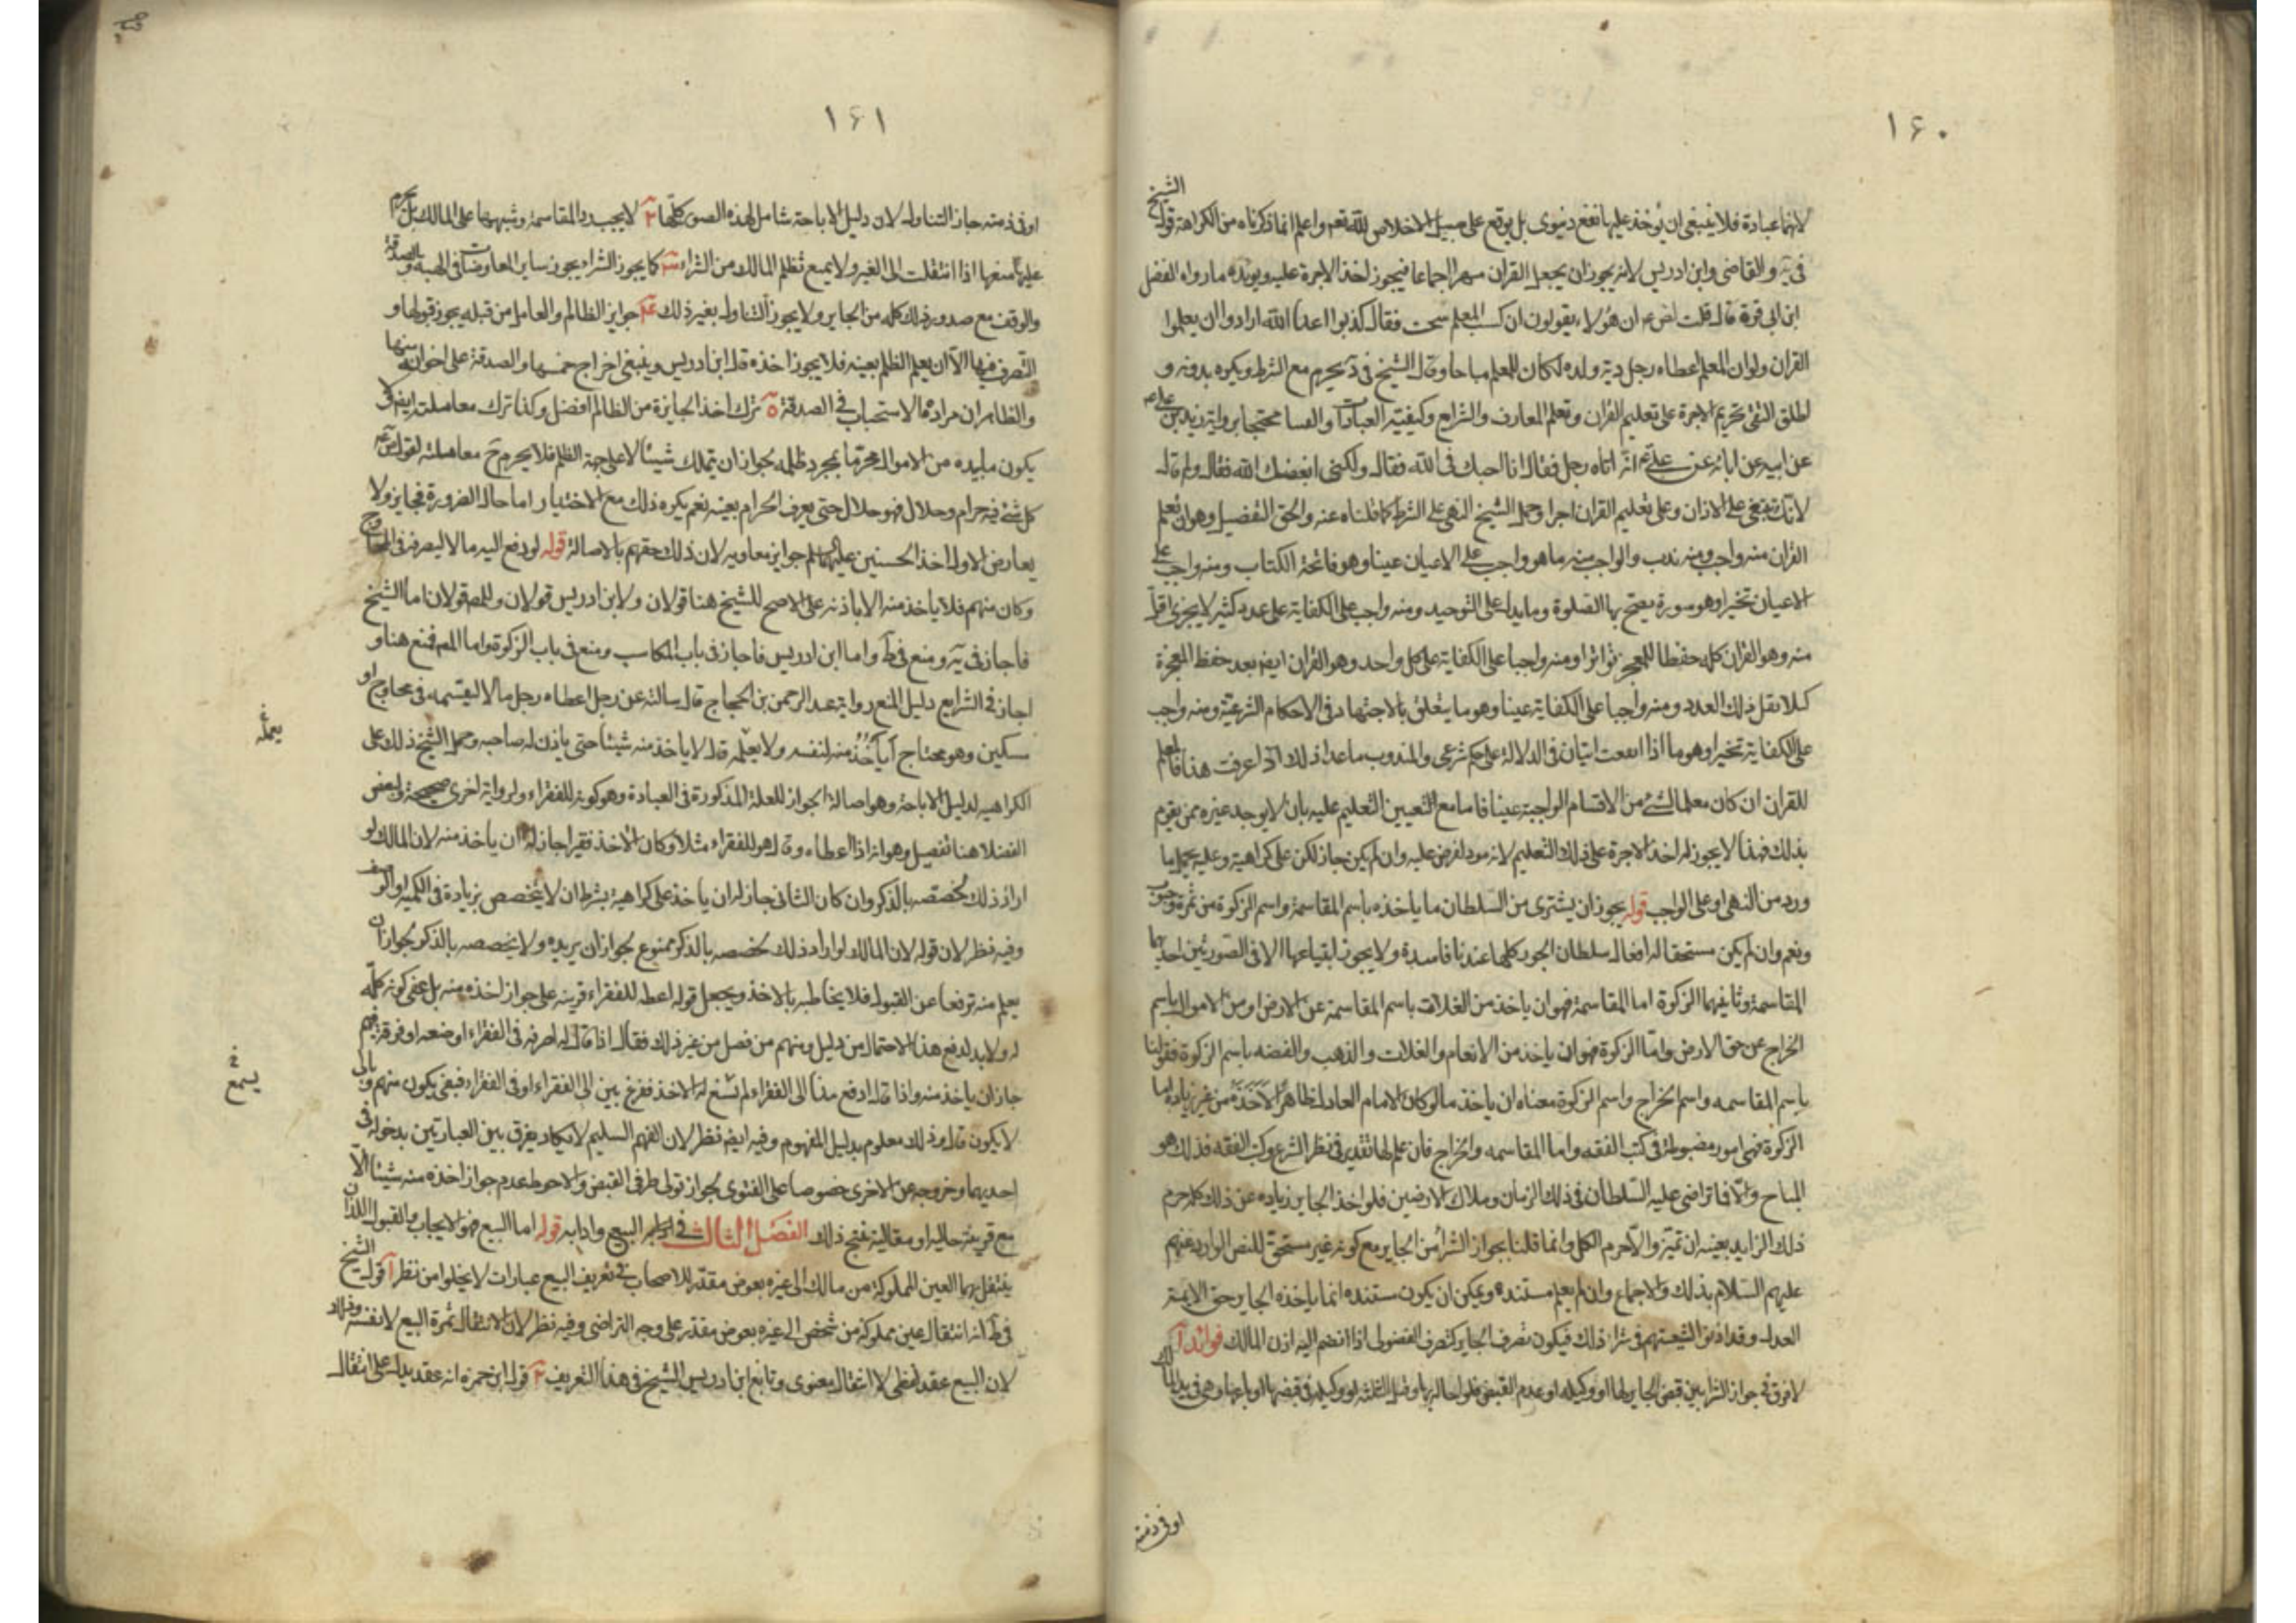 ١٦٠
لانها عبادة فلا ينبغى ان يؤخذ عليها نفع دنيوى بل يوقع على سبيل الاخلاص لله تعم واعلم انما ذكرناه من الكراهة قول الشيخ
فى يه والقاضى وابن ادريس لانه يجوز ان يجعل القران مهرا اجماعا فيجوز اخذ الاجرة عليه ويؤيده ما رواه الفضل
ابن ابى قرة قال قلت ان هؤلاء يقولون ان كسب المعلم سحت فقال كذبوا اعداء الله ارادوا ان يعلموا
القران ولو ان المعلم اعطاه رجل دية ولده لكان للمعلم مباحا وقال الشيخ فى يحرم مع الشرط ويكره بدونه و
اطلق التقى تحريم الاجرة على تعليم القران وتعلم المعارف والشرايع وكيفية العبادات محتجا برواية زيد بن على
عن ابيه عن ابائه عن على انه اتاه رجل فقال انا احبك فى الله فقال ولكنى ابغضك الله فقال ولم قال
لانك تبتغى على الاذان وعلى تعليم القران اجرا وحمل الشيخ النهى على الشرط كما قلناه عنه والحق التفصيل وهو ان تعليم
القران منه واجب ومنه ندب والواجب منه ما هو واجب على الاعيان عينا وهو فاتحة الكتاب ومنه واجب على
الاعيان تخيرا وهو سورة يصح بها الصلوة وما يدل على التوحيد ومنه واجب على الكفاية على عدد كثير لا يجزى اقل
منه وهو القران كله حفظا للمعجز تواترا ومنه واجبا على الكفاية على كل واحد وهو القران ايضا بعد حفظ المعجزة
كملا نقل ذلك العدد ومنه واجبا على الكفاية عينا وهو ما يتعلق بالاجتهاد فى الاحكام الشرعية ومنه واجب
على الكفاية تخيرا وهو ما اذا ايتان فى الدلالة على حكم شرعى والمندوب ما عدا ذلك اذا عرفت هذا فالمعلم
للقران ان كان معلما لشئ من الاقسام الواجبة عينا فاما مع التعيين التعليم عليه بان لا يوجد غيره ممن يقوم
بذلك فهذا لا يجوز له اخذ الاجرة على ذلك التعليم لانه مود لفرض عليه وان لم يكن جاز لكن على كراهية وعليه يحمل ما
ورد من النهى او على الواجب قوله يجوز ان يشترى من السلطان ما ياخذه باسم المقاسمة واسم الزكوة من ثمرة وحبوب
ونعم وان لم يكن مستحقا له افعال سلطان الجور كلها عندنا فاسدة ولا يجوز اتباعها الا فى الصورتين احديهما
المقاسمة وثانيهما الزكوة اما المقاسمة فهو ان ياخذ من الغلات باسم المقاسمة عن الارض او من الاموال باسم
الخراج عن حق الارض واما الزكوة فهو ان ياخذ من الانعام والغلات والذهب والفضه باسم الزكوة فقولنا
باسم المقاسمه واسم الخراج واسم الزكوة معناه ان ياخذ ما لو كان الامام العادل ظاهرا لاخذه من غير زيادة اما
الزكوة فهى امور مضبوطة فى كتب الفقه واما المقاسمه والخراج فان علم لها تقدير فى نظر الشرع وكتب الفقه فذلك هو
المباح والا فما تراضى عليه السلطان فى ذلك الزمان وملاك الارضين فلو اخذ الجاير زيادة عن ذلك كله حرم
ذلك الزايد بعينه ان تميز والا حرم الكل وانما قلنا بجواز الشراء من الجاير مع كونه غير مستحق للنص الوارد عنهم
عليهم السلام بذلك والاجماع وان لم يعلم مستنده ويمكن ان يكون مستنده انما ياخذه الجاير حق الايمة
العدل وقد اذنوا لشيعتهم فى شراء ذلك فيكون تصرف الجاير كتصرف الفضولى اذا انضم اليه اذن المالك فوائد آ
لا فرق فى جواز الشراء بين قبض الجاير لها او وكيله او عدم القبض فلو احاله بها وقبل الثلثة او وكيله فى قبضها او باعها وهى فى يد المالك
او فى ذمته
١٦١
او فى ذمته جاز التناول لان دليل الاباحة شامل لهذه الصور كلها ٢ لا يجب رد المقاسمة وشبهها على المالك بل يحرم
عليه منعها اذا انتقلت الى الغير ولا يمنع تظلم المالك من الشراء ٣ كما يجوز الشراء يجوز ساير المعاوضات فى الهبه والصدقة
والوقف مع صدور ذلك كله من الجاير ولا يجوز التناول بغير ذلك ٤ جوايز الظالم والعامل من قبله يجوز قبولها و
التصرف فيها الا ان يعلم الظلم بعينه فلا يجوز اخذه قال ابن ادريس وينبغى اخراج خمسها والصدقة على اخوانه منها
والظاهر ان مراده الاستحباب فى الصدقة ٥ ترك اخذ الجايزة من الظالم افضل وكذا ترك معاملته ايضا ولا
يكون ما بيده من الاموال محرما بمجرد ظلمه لجواز ان يتملك شيئا لا على جهة الظلم فلا يحرم ح معاملته لقوله
كل شئ فيه حرام وحلال فهو حلال حتى يعرف الحرام بعينه نعم يكره ذلك مع الاختيار اما حال الضرورة فجايز ولا
يعارض الاول اخذ الحسنين عليهما السلم جوايز معاويه لان ذلك حقهم بالاصالة قوله لو دفع اليه مالا ليصرفه فى المحاويج
وكان منهم فلا ياخذ منه الا باذنه على الاصح للشيخ هنا قولان ولابن ادريس قولان وللمص قولان اما الشيخ
فاجاز فى يه ومنع فى ط واما ابن ادريس فاجاز فى باب المكاسب ومنع فى باب الزكوة واما المص فمنع هنا و
اجاز فى الشرايع دليل المنع رواية عبد الرحمن بن الحجاج قال سالته عن رجل اعطاه رجل مالا ليقسمه فى محاويج او
مسكين وهو محتاج أيأخذ منه لنفسه ولا يعلمه قال لا ياخذ منه شيئا حتى ياذن له صاحبه وحمل الشيخ ذلك على
الكراهية لدليل الاباحة وهو اصالة الجواز للعلة المذكورة فى العبادة وهو كونه للفقراء ولرواية اخرى صحيحة ولبعض
الفضلا هنا تفصيل وهو انه اذا اعطاه وقال هو للفقراء مثلا وكان الاخذ فقيرا جاز له ان ياخذ منه لان المالك لو
اراد ذلك لخصصه بالذكر وان كان الثانى جاز له ان ياخذ على كراهية بشرط ان لا يتخصص بزيادة فى الكمية او الوصف
وفيه نظر لان قوله لان المالك لو اراد ذلك لخصصه بالذكر ممنوع لجواز ان يريده ولا يخصصه بالذكر لجواز ان
يعلم منه ترفعا عن القبول فلا يخاطبه بالاخذ ويجعل قوله اعطه للفقراء قرينه على جواز اخذه منه بل على كونه كله
له ولا بد لدفع هذا الاحتمال من دليل ومنهم من فصل من غير ذلك فقال اذا قال له اصرفه فى الفقراء او ضعه او فرقه فيهم
جاز ان ياخذ منه واذا قال ادفع هذا الى الفقراء لم يسغ له الاخذ ففرق بين الى الفقراء او فى الفقراء ففى يكون منهم وبالى
لا يكون قال وذلك معلوم بدليل المفهوم وفيه ايضا نظر لان الفهم السليم لا يكاد يفرق بين العبارتين بدخوله فى
احديهما وخروجه عن الاخرى خصوصا على الفتوى بجواز تولى طرفى القبض والاحوط عدم جواز اخذه منه شيئا الا
مع قرينة حاليه او مقالية تفتح ذلك الفصل الثالث فى البيع وادابه قوله اما البيع فهو الايجاب والقبول اللذان
ينتقل بهما العين المملوكة من مالك الى غيره بعوض مقدر للاصحاب فى تعريف البيع عبارات لا يخلوا من نظر آ قول الشيخ
فى ط انه انتقال عين مملوكة من شخص الى غيره بعوض مقدر على وجه التراضى وفيه نظر لان الانتقال ثمرة البيع لا نفسه
لان البيع عقد لفظى لا انتقال معنوى وتابع ابن ادريس الشيخ فى هذا التعريف ٢ قول ابن حمزه انه عقد يدل على انتقال